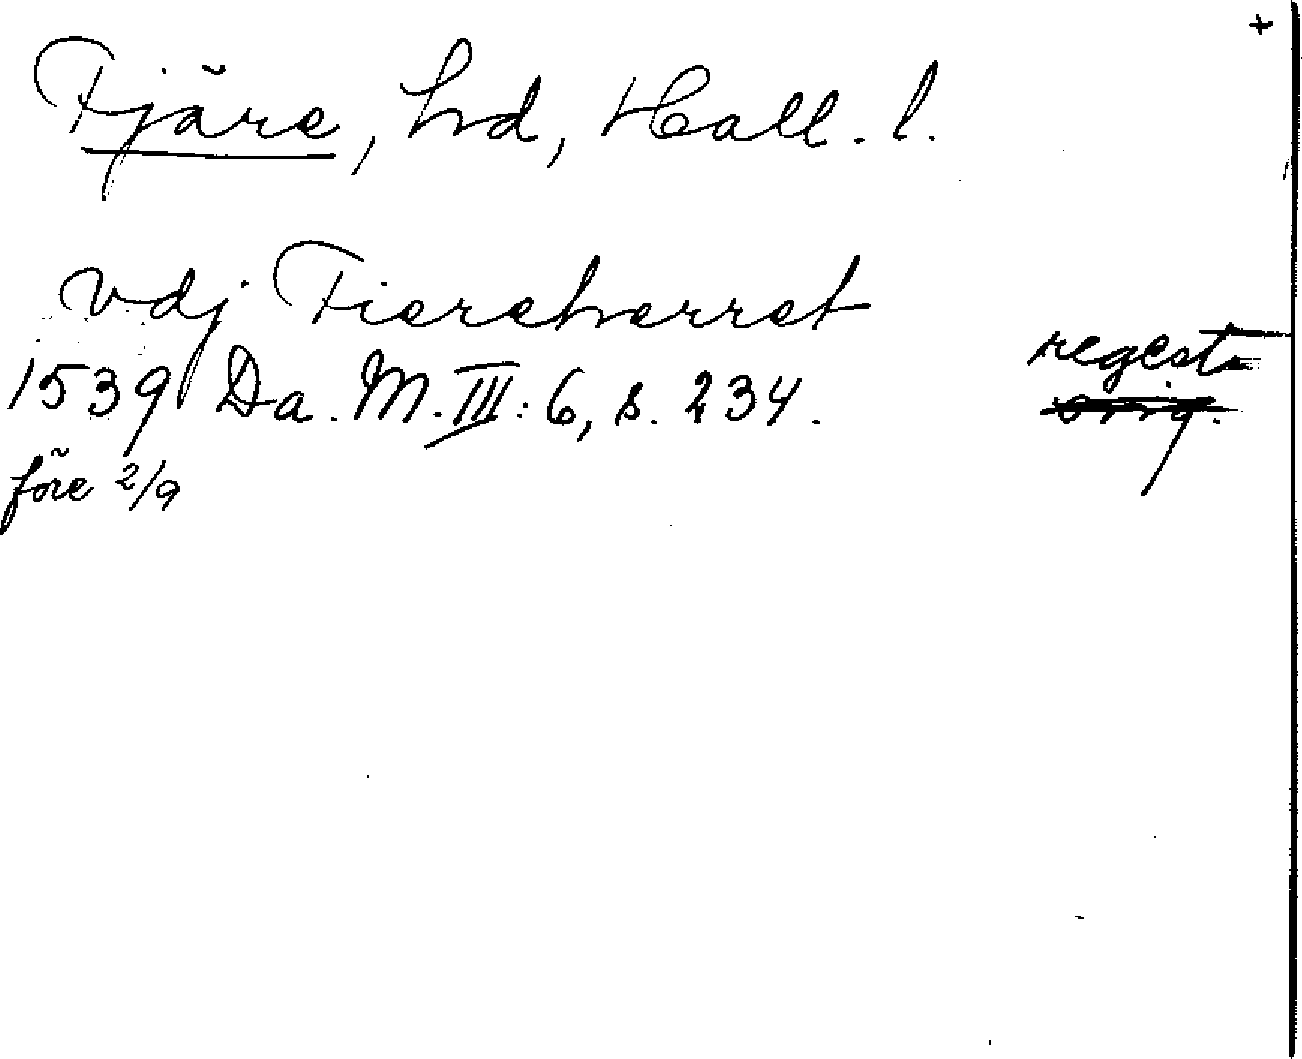 +
Fjäre, hd, Hall. l.
vdj Fiereherret
1539 Da. M. III: 6, s. 234.
regest
orig.
före 2/9